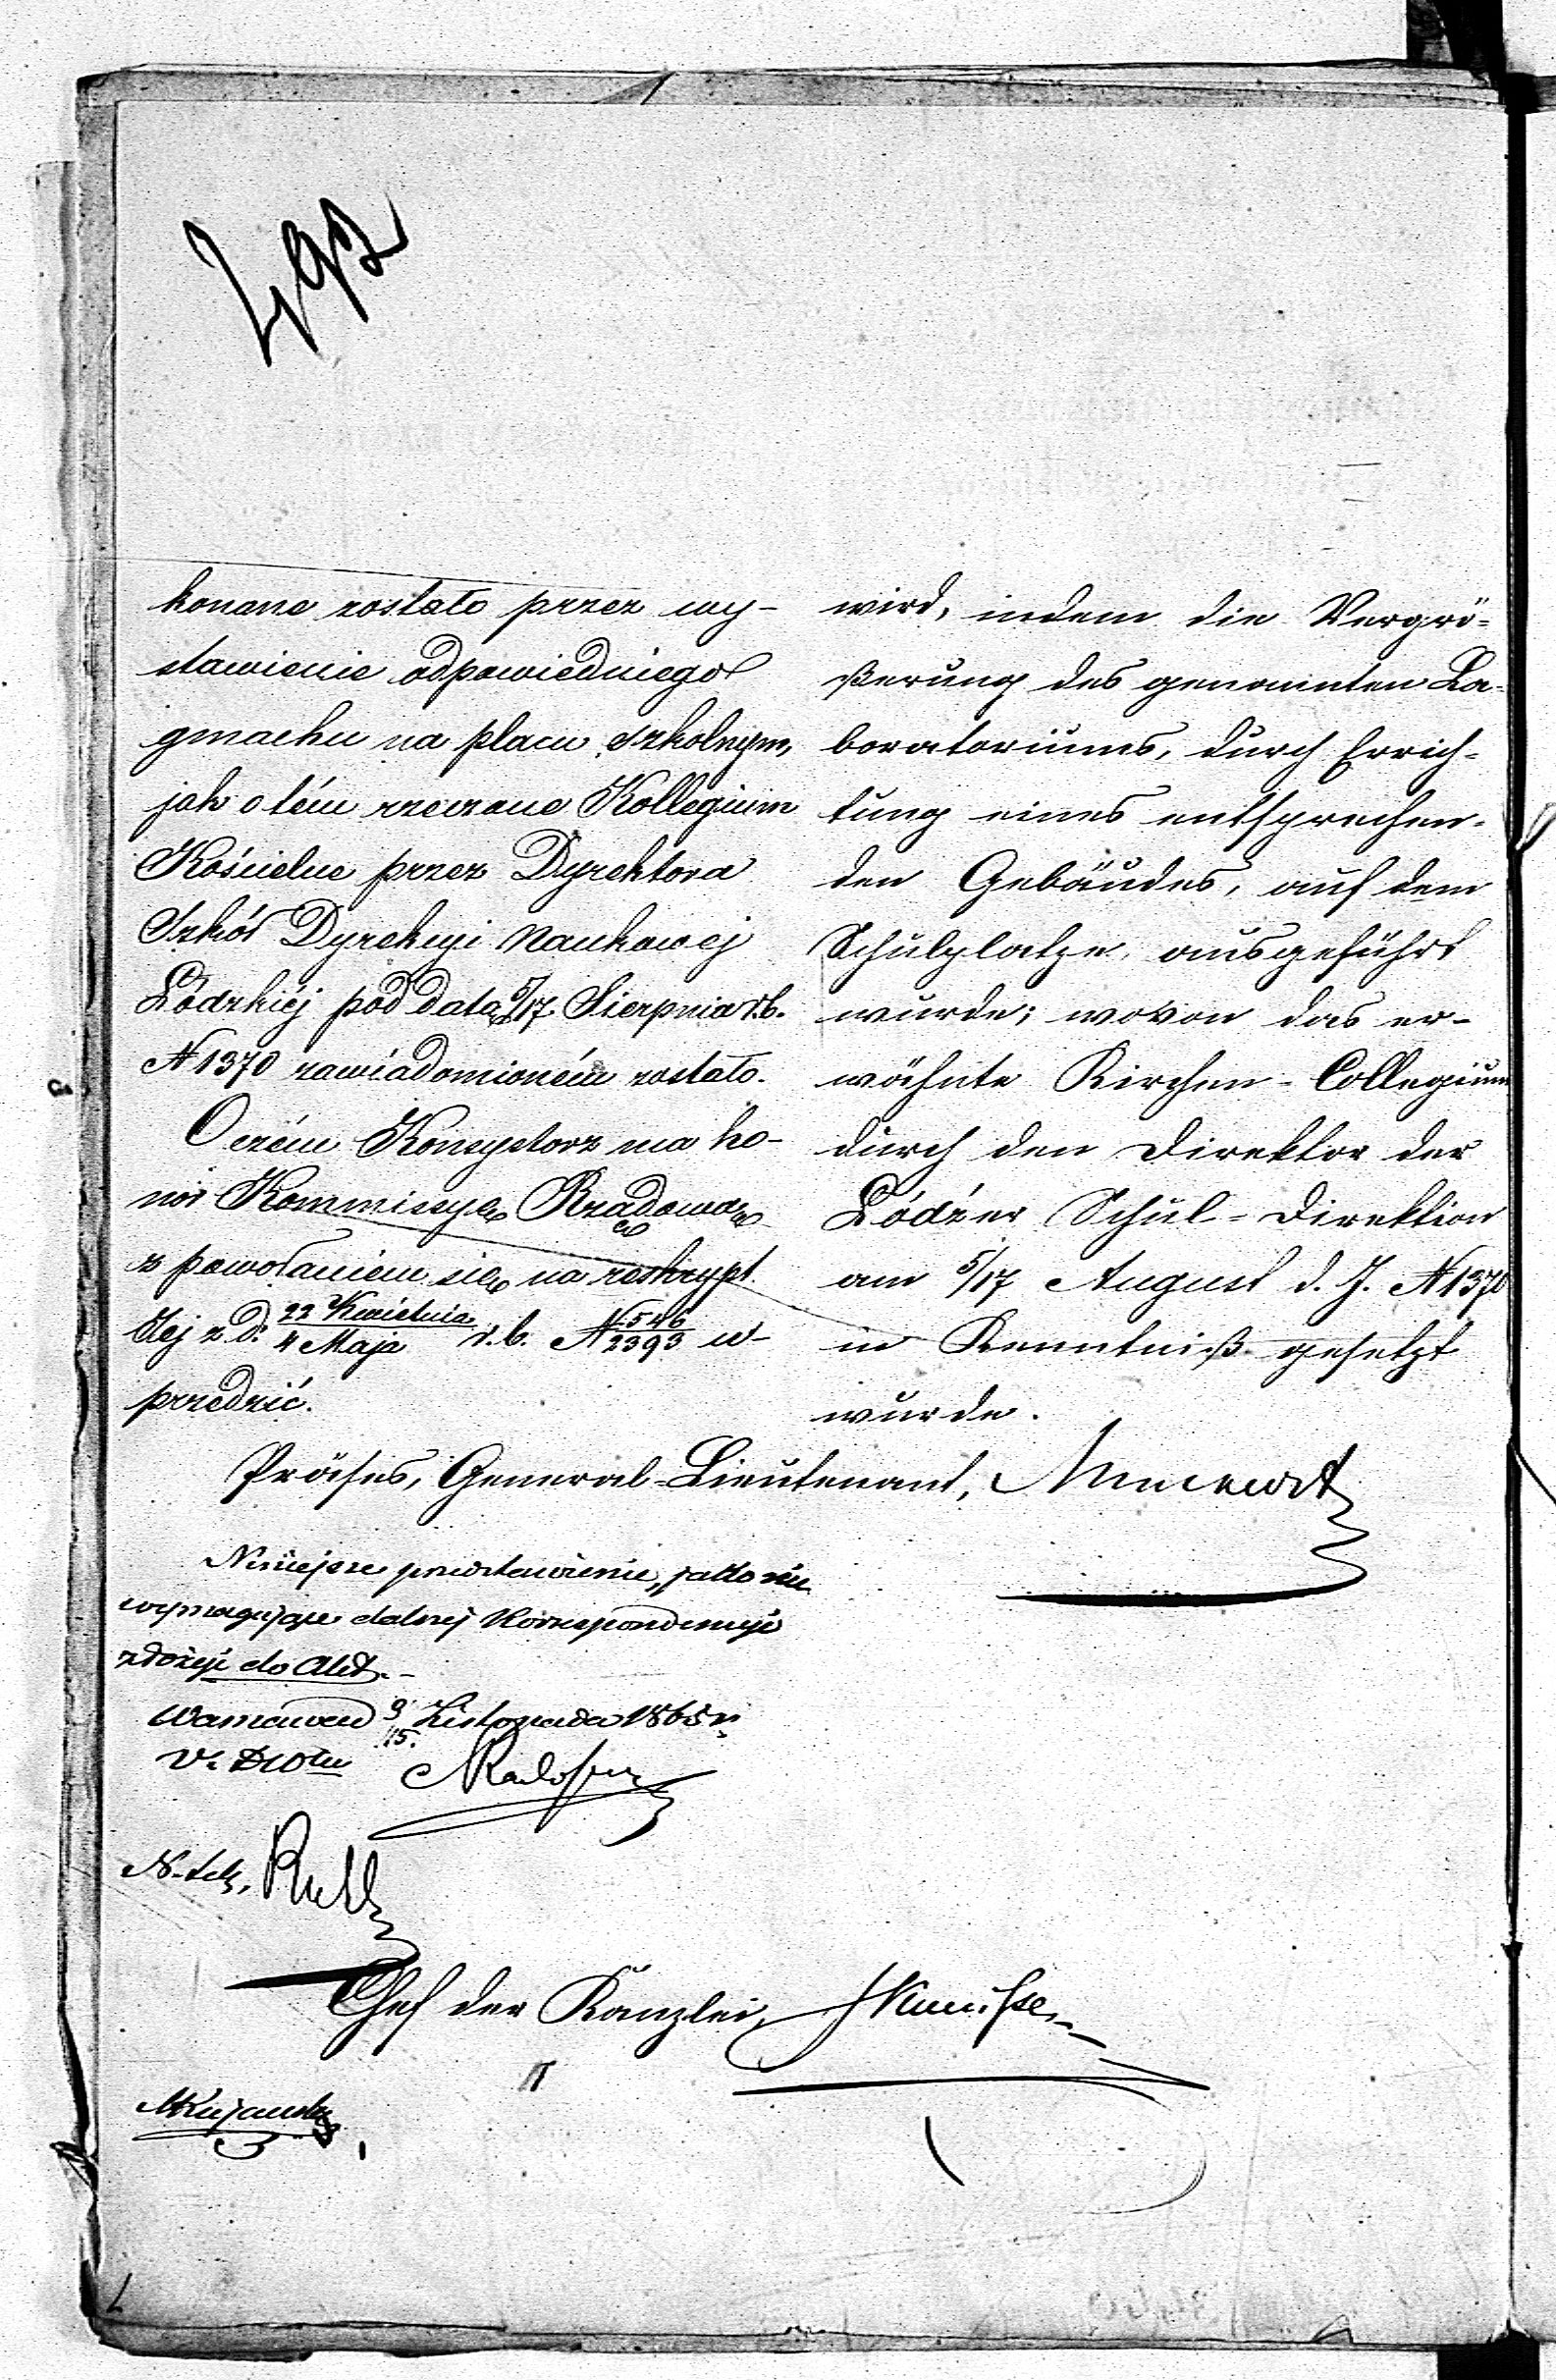 konane zostało przez wy-
stawienie odpowiedniego
gmachu na placu szkolnym,
jak o tém rzeczone Kollegium
Kościelne przez Dyrektora
Szkół Dyrekcyi Naukowej
Łódzkiéj pod datą 5/17 Sierpnia r.b.
N 1370 zawiadomioném zostało.
O czém Konsystorz ma ho-
nor Kommissyę Rządową
z powołaniem się na reskrypt
Jej z d. 22 Kwietnia/4 Maja r.b. N 546/2393 u-
przedzić.
wird, indem die Vergrö-
ßerung des genannten La-
boratoriums, durch Errich-
tung eines entsprechen-
den Gebäudes, auf dem
Schulplatze, ausgeführt
wurde; wovon das er-
wähnte Kirchen-Collegium
durch den Direktor der
Łódźer Schul-Direktion
am 5/17 August d. J. N 1370
in Kenntniß gesetzt
wurde.
Präses, General-Lieutenant,
Niniejsze przedstawienie, jako nie
wymagające dalszej Korrespondencyi
złożyć do Akt.
Listopada 1865 r.
Chef der Kanzlei,